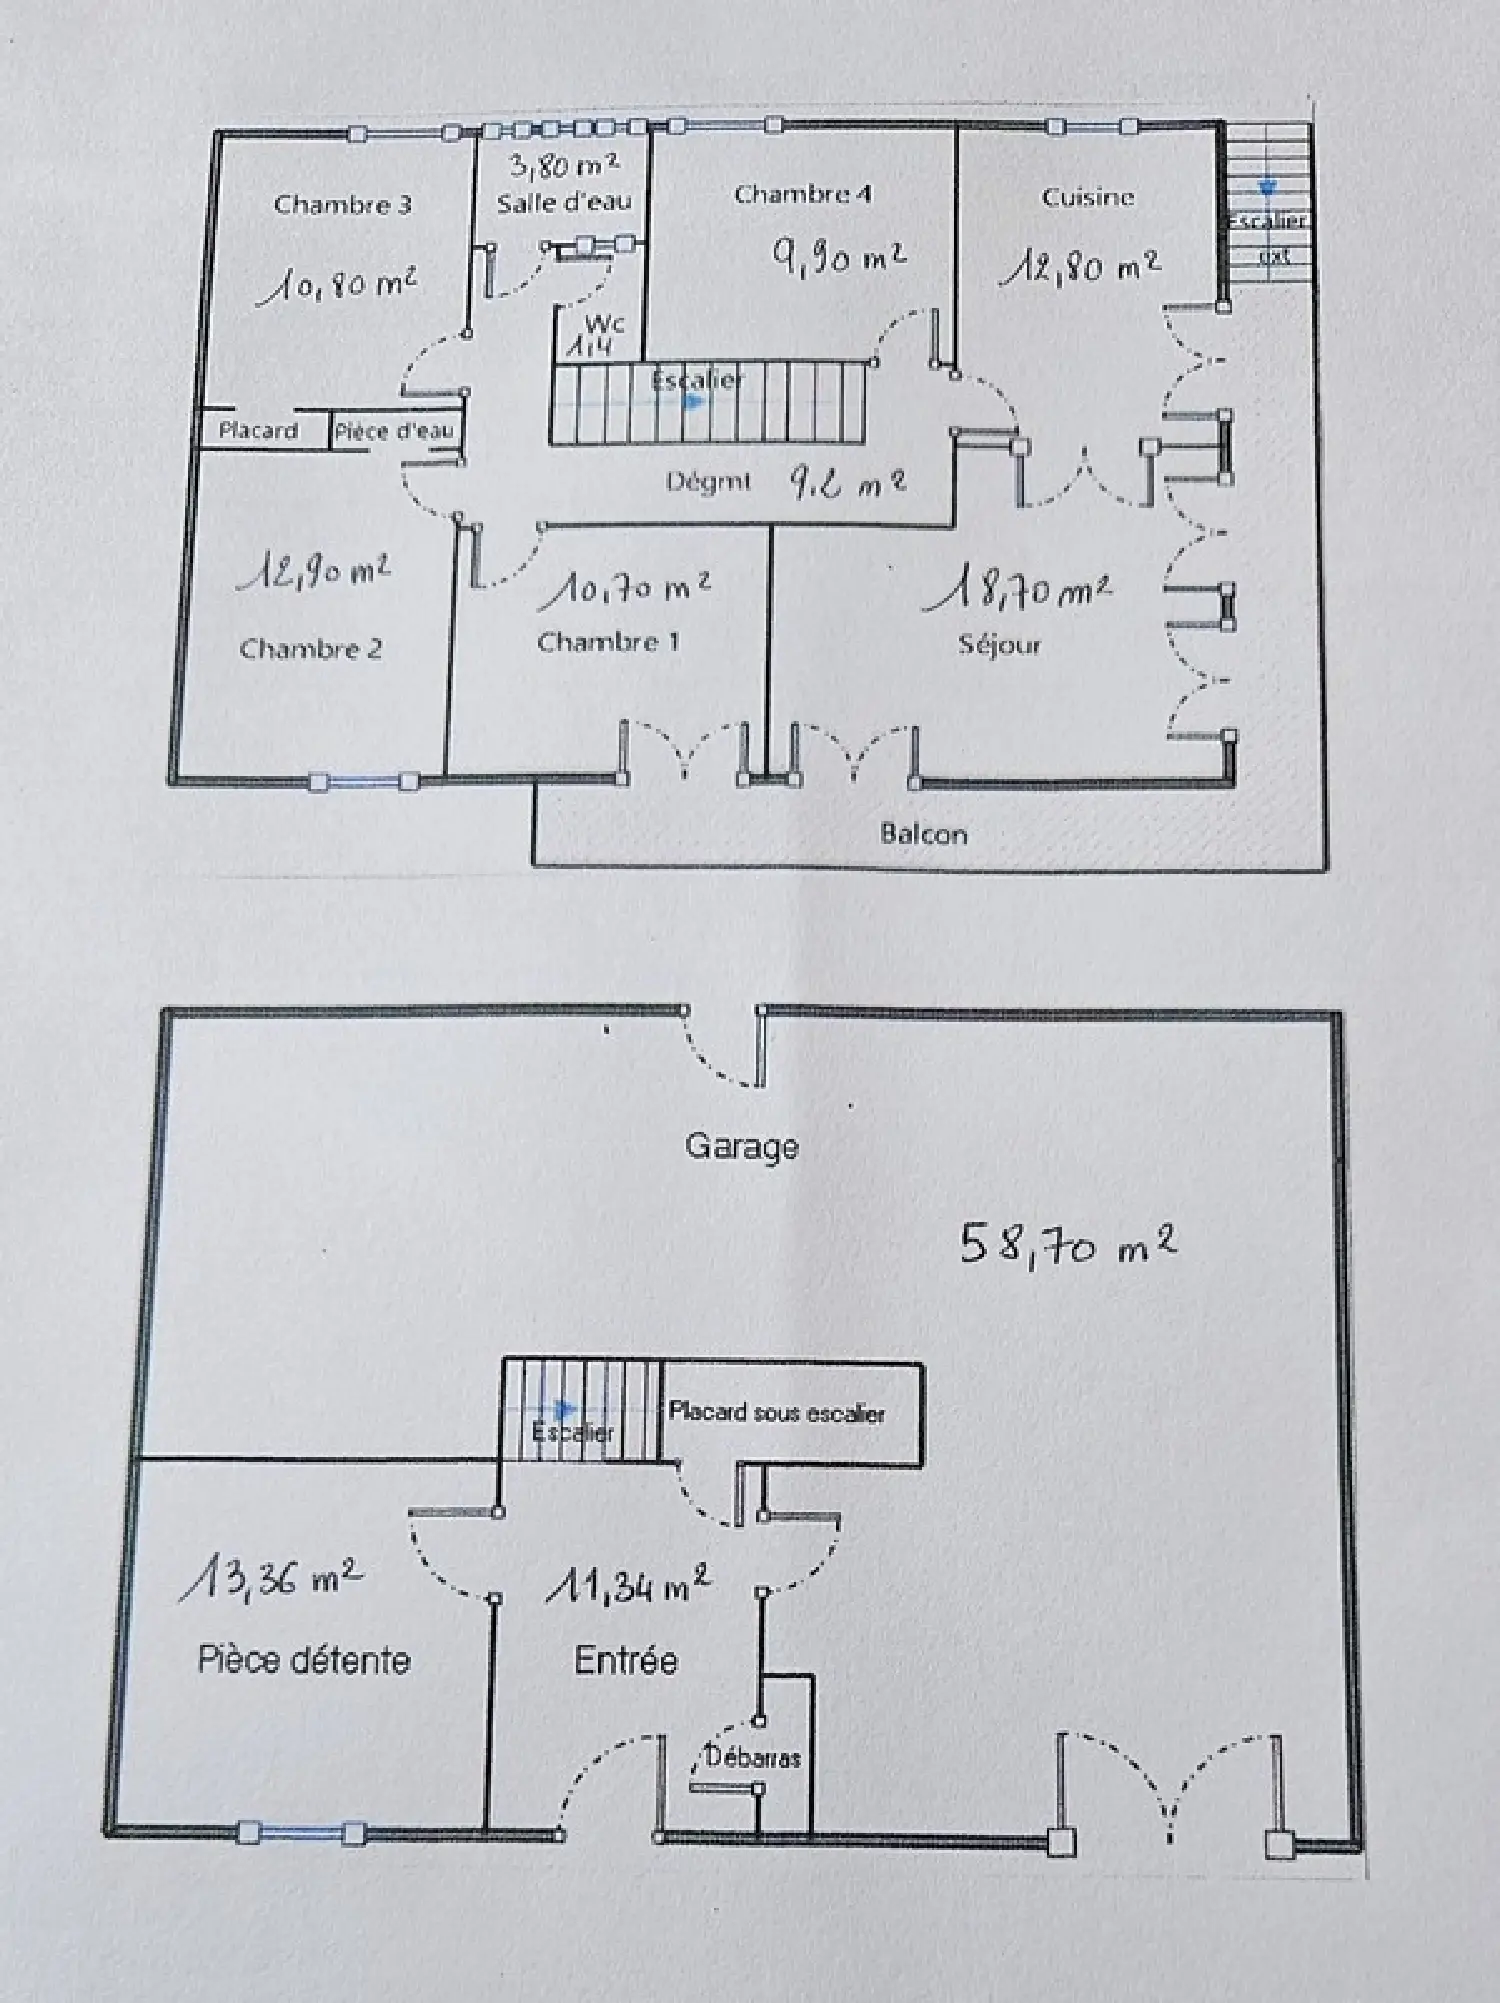 3,80 m²
Salle d'eau
Chambre 3
Chambre 4
Cuisine
10,80 m²
9,90 m²
12,80 m²
Escalier
ext
Wc
1,4
Escalier
Placard
Pièce d'eau
Dégmt 9.2 m²
12,90 m²
Chambre 2
10,70 m²
Chambre 1
18,70 m²
Séjour
Balcon
Garage
58,70 m²
Escalier
Placard sous escalier
13,36 m²
Pièce détente
11,34 m²
Entrée
Débarras